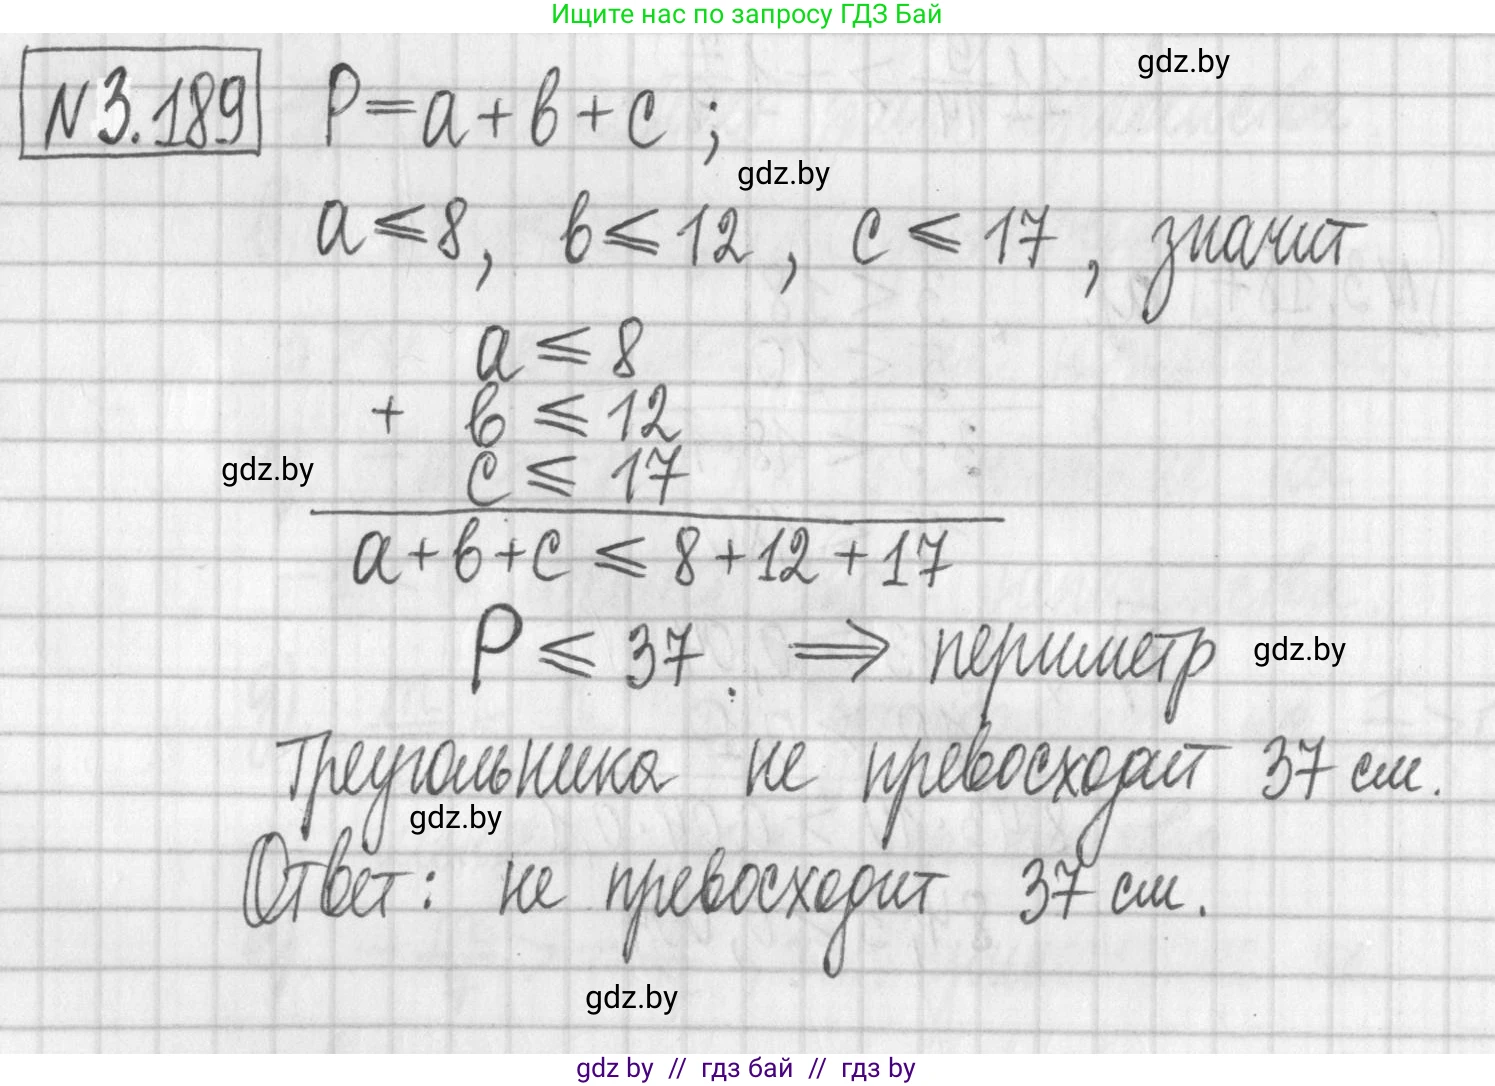 Ищите нас по запросу ГДЗ Бай
gdz.by
№3.189 P=a+b+c;
gdz.by
a≤8, b≤12, c≤17, значит
a≤8
+ b≤12
gdz.by c≤17
a+b+c≤8+12+17
P≤37. ⇒ периметр gdz.by
треугольника не превосходит 37 см.
gdz.by
Ответ: не превосходит 37 см.
gdz.by
gdz by // гдз бай // гдз by